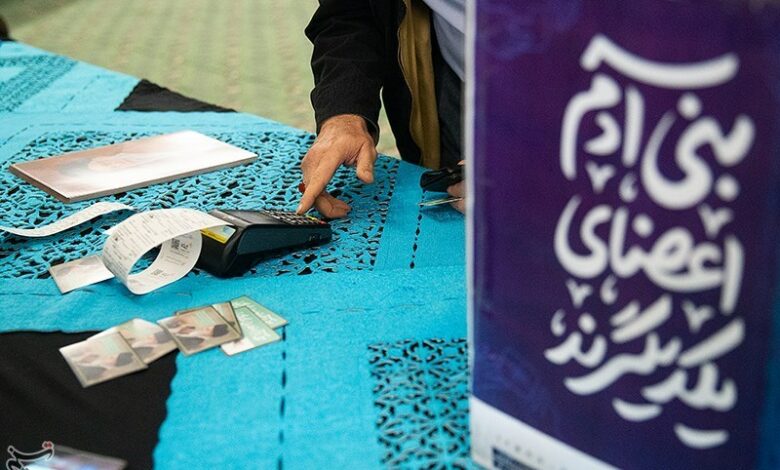 بنی آدم
اعضای
یکدیگرند
تسنیم